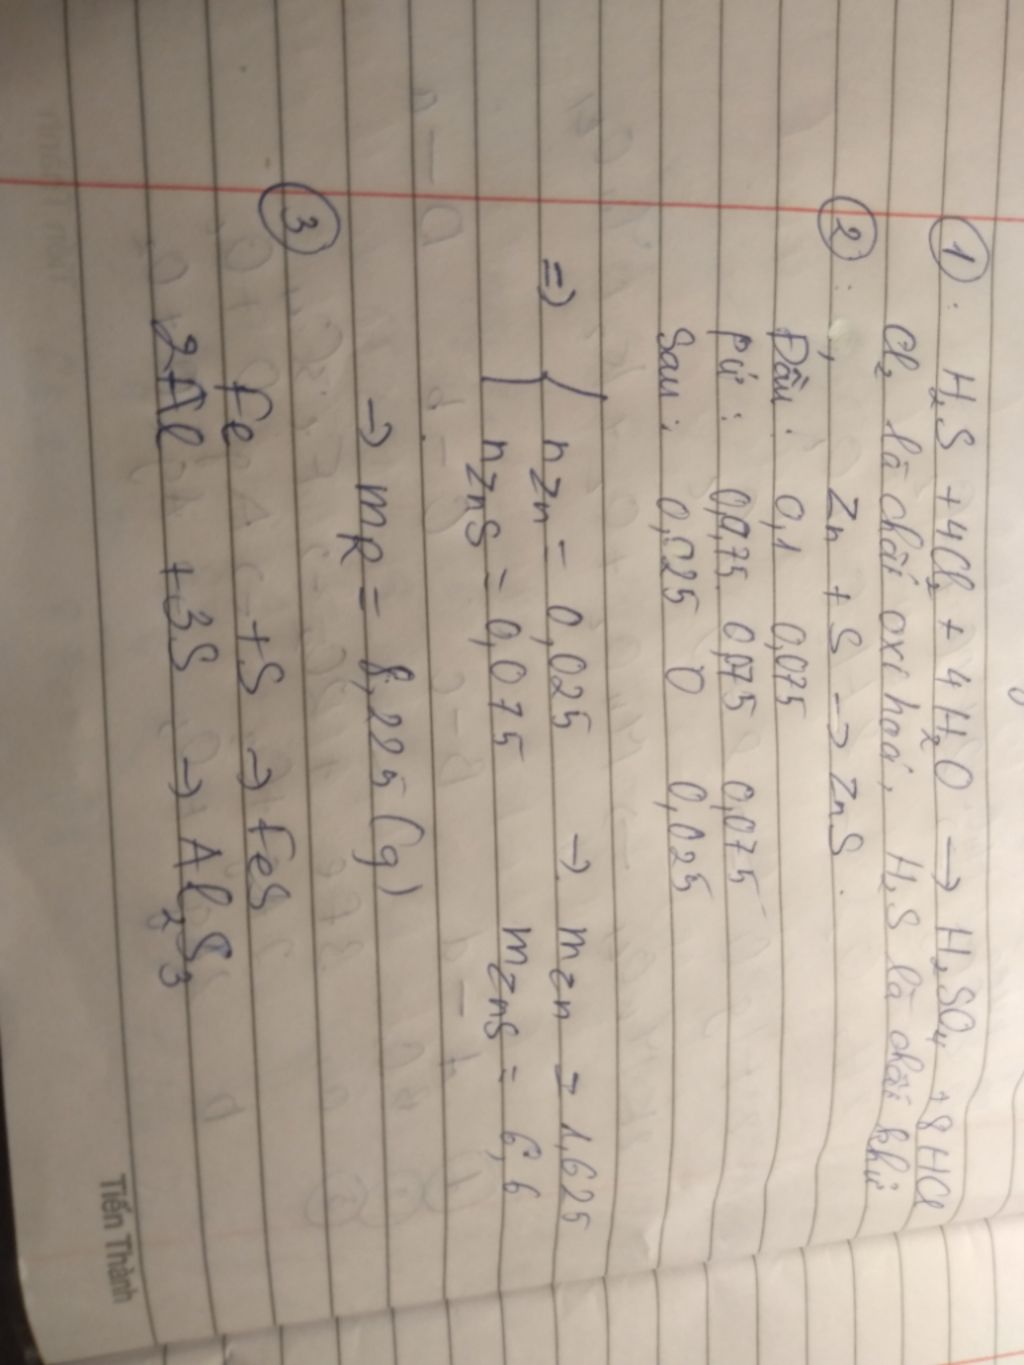 ① : H₂S + 4Cl₂ + 4H₂O → H₂SO₄ + 8HCl
Cl₂ là chất oxi hoá, H₂S là chất khử
② : Zn + S → ZnS.
Đầu : 0,1 0,075
pứ : 0,075 0,075 0,075
Sau : 0,025 0 0,025
=> { nZn = 0,025 → mZn = 1,625
nZnS = 0,075 mZnS = 6,6
→ mR = 8,225 (g)
③ Fe + S → FeS
2Al + 3S → Al₂S₃
Tiến Thành